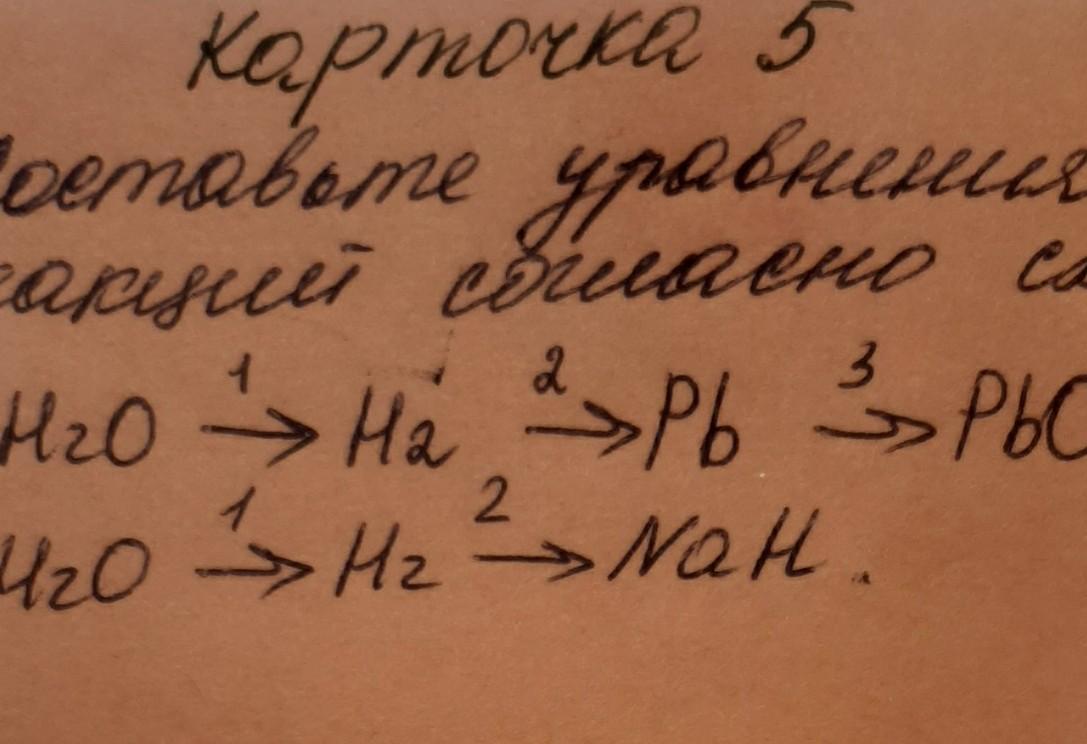 Карточка 5
Составьте уравнения
еакций согласно сх
H₂O →¹ H₂ →² Pb →³ PbO
H₂O →¹ H₂ →² NaH.